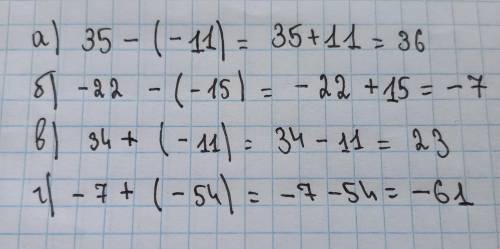 а) 35 - (-11) = 35+11 = 36
б) -22 - (-15) = -22 +15 = -7
в) 34 + (-11) = 34 - 11 = 23
г) -7 + (-54) = -7 -54 = -61